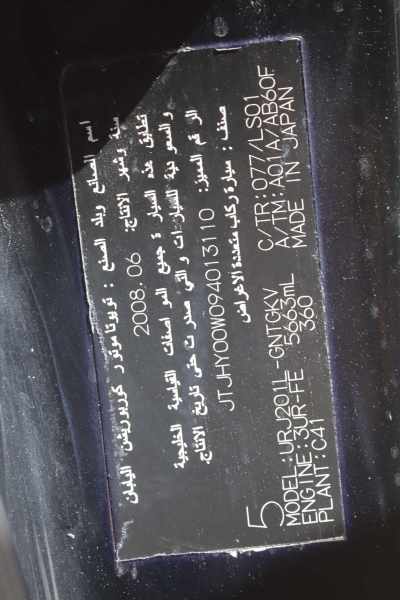 اسم الصانع وبلد الصنع : تويوتا موتور كوربوريشن اليابان
سنة وشهر الانتاج: 2008.06
تطابق هذه السيارة جميع المواصفات القياسية الخليجية
والسعودية للسيارات والتي صدرت حتى تاريخ الانتاج.
الرقم المميز: JTJHY00W094013110
صنف : سيارة ركاب متعددة الاغراض
5
MODEL:URJ201L-GNTGKV C/TR:077/LS01
ENGINE:3UR-FE 5663mL A/TM:A01A/AB60F
PLANT:C41 360 MADE IN JAPAN